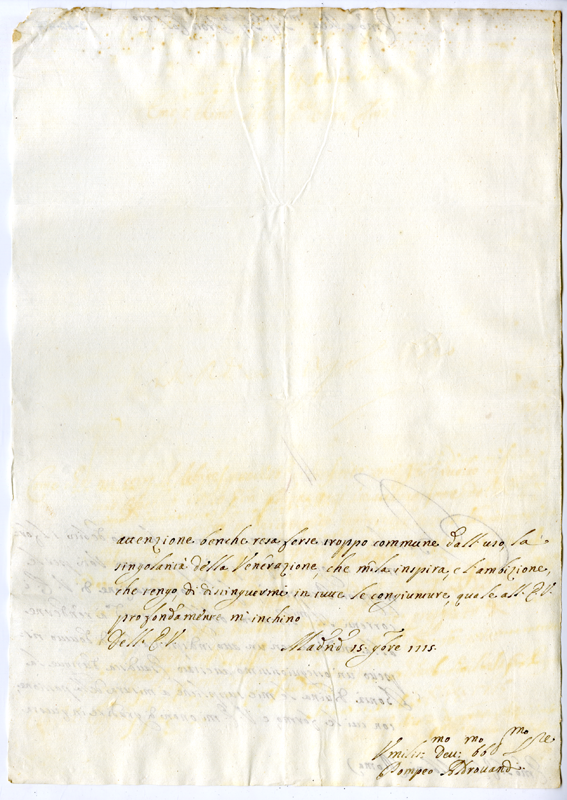 attenzione benche resa forse troppo commune dall'uso, la
singolarità della Venerazione, che me la inspira, e l'ambizione,
che tengo di distinguermi in tutte le congiunture, quale all'E.V.
profondamente m'inchino
Dell'E.V. Madrid 15. 9bre 1715.
Umiliss.mo Dev.mo Obb.mo
Pompeo Aldrovandi